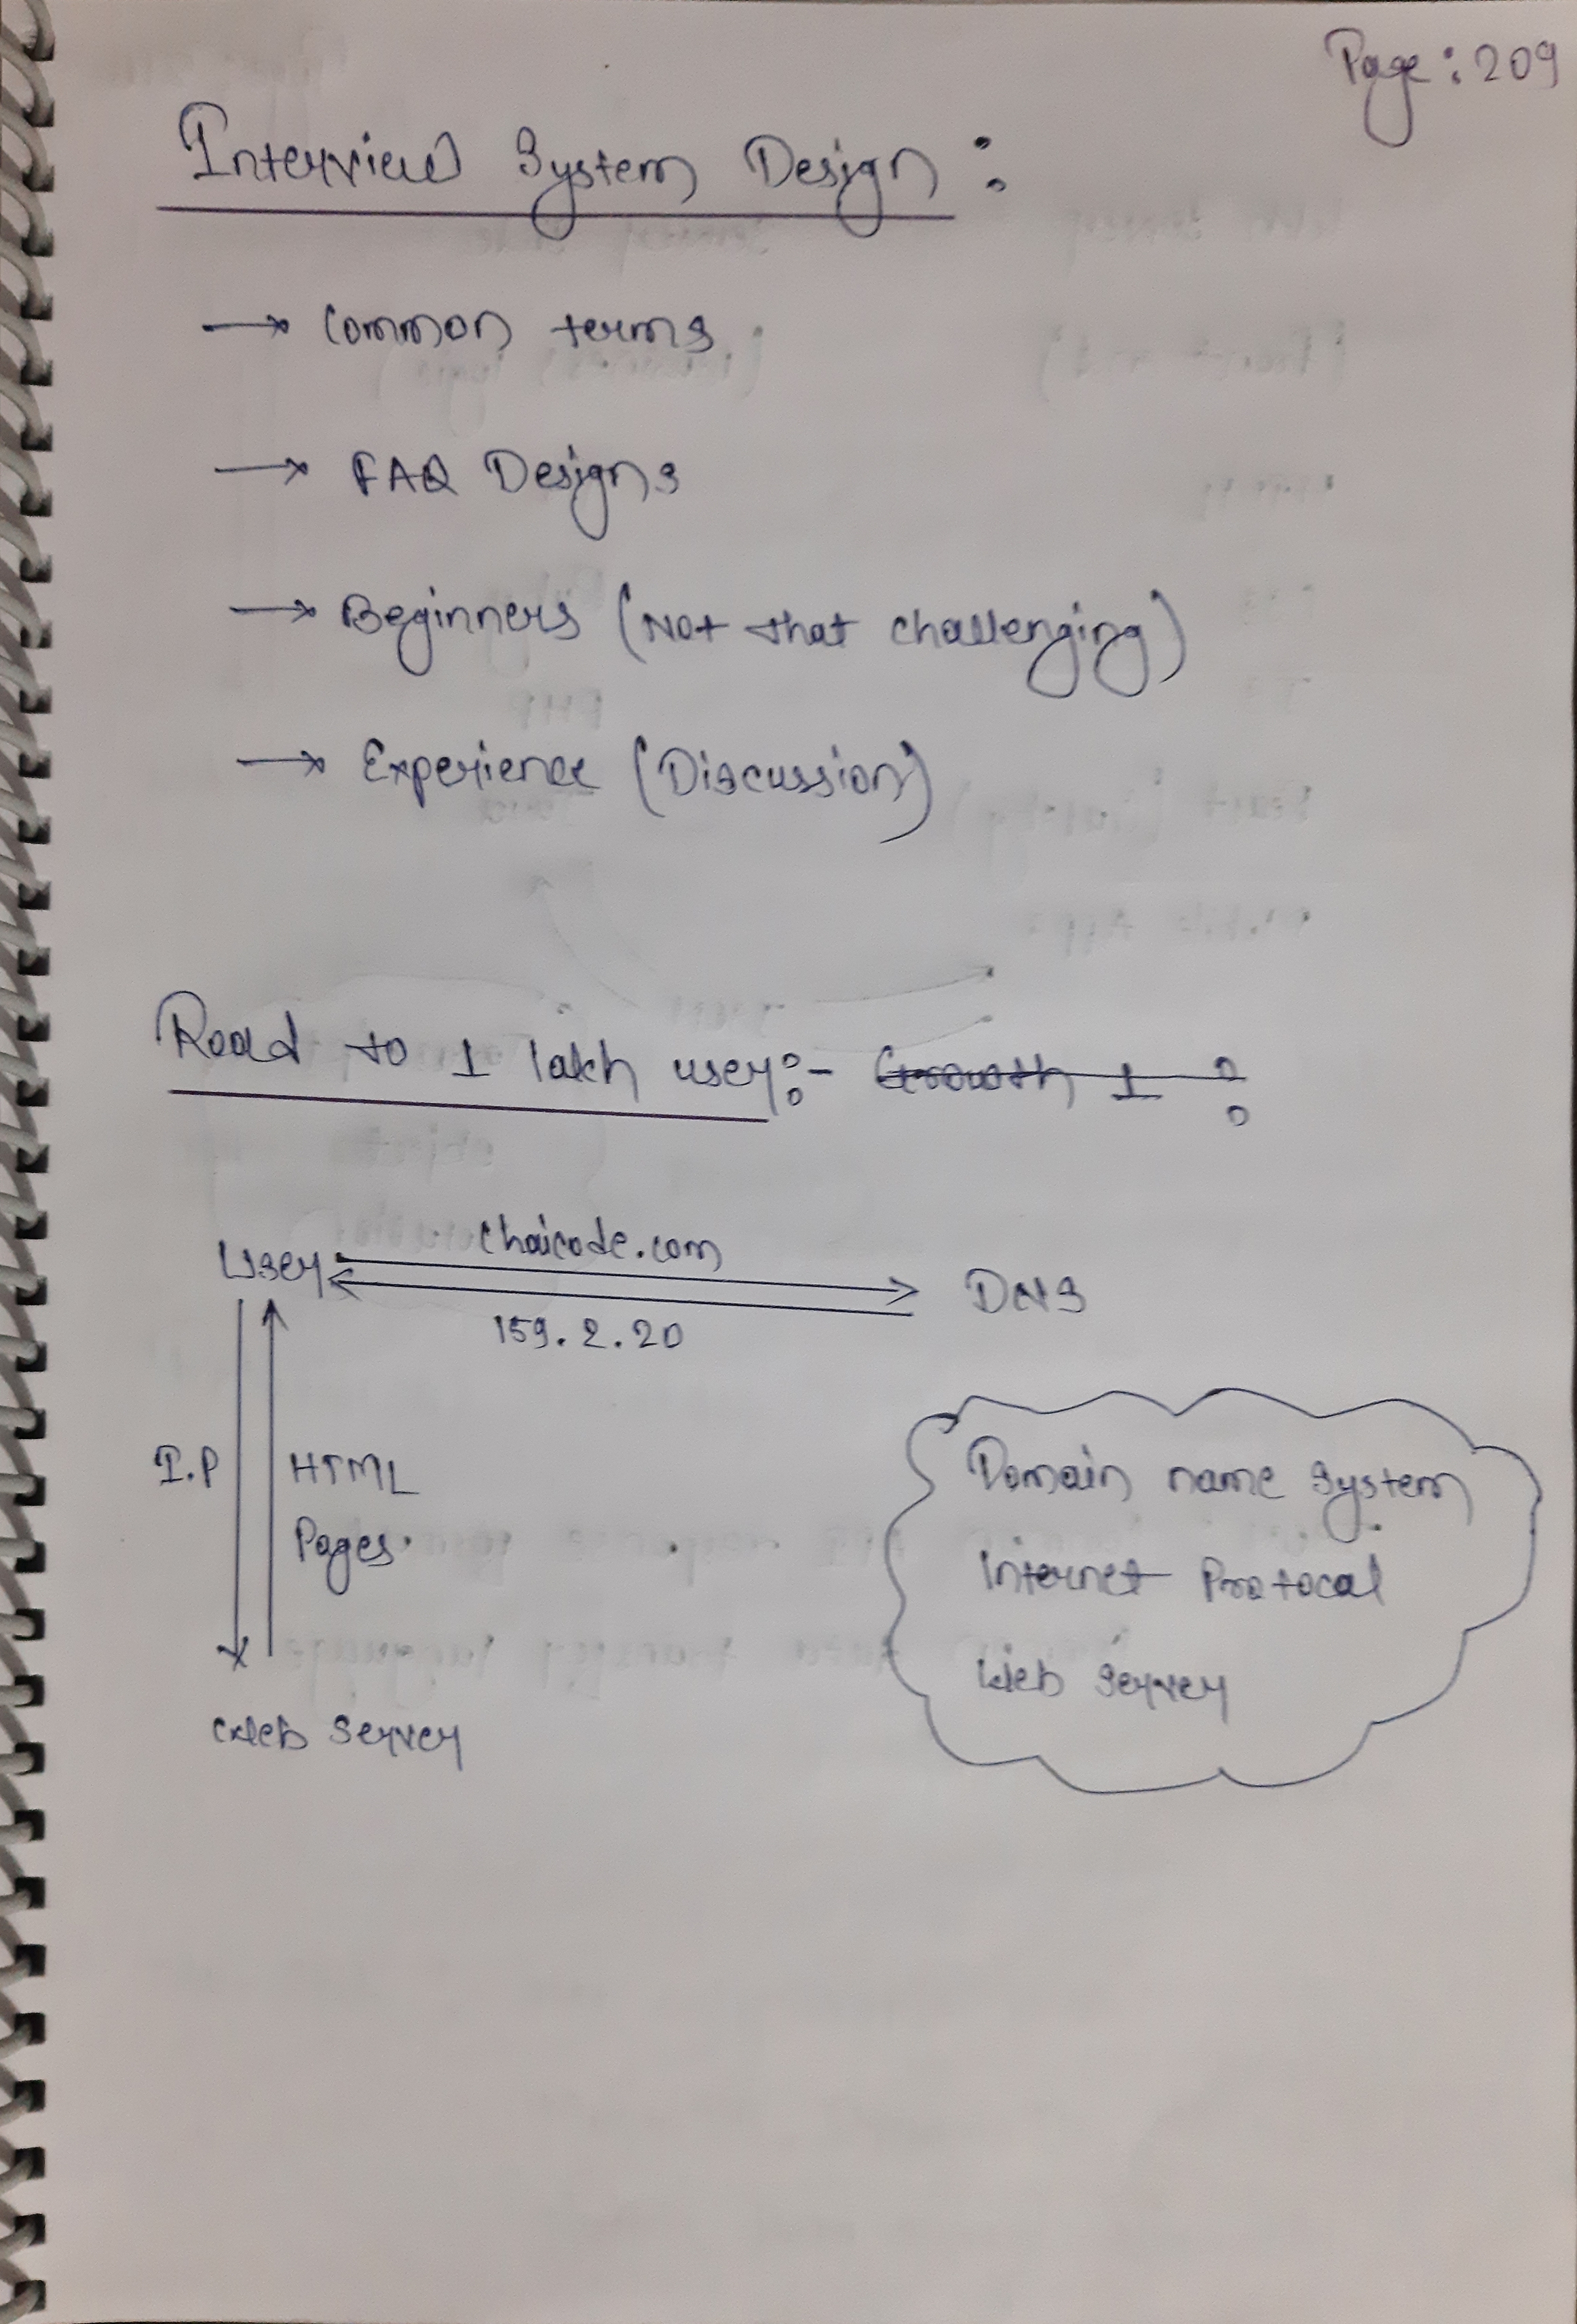 Page: 209
Interview System Design :
→ Common terms
→ FAQ Designs
→ Beginners (Not that challenging)
→ Experience (Discussion)
Road to 1 lakh user:- Growth 1 :
chaicode.com
User DNS
159.2.20
I.P HTML
Pages.
Web Server
Domain name System
Internet Protocal
Web Server